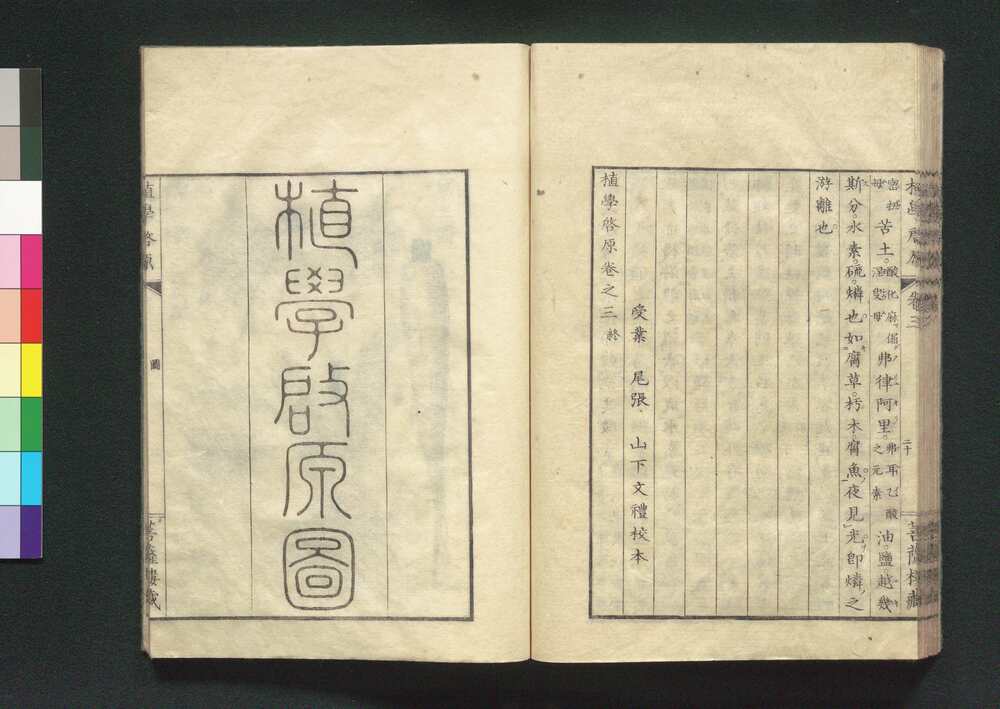 植學啓原 卷三 二十 菩薩樓藏
苦土。酸化麻偭 弗律阿里。弗耳乙酸之元素 油。鹽。越幾
斯分。水素。硫。燐也。如腐草。朽木。腐魚。夜見光。卽燐之
游離也。
受業 尾張 山下文禮校本
植學啓原卷之三 終
植學啓原圖
植學啓原 圖 菩薩樓藏